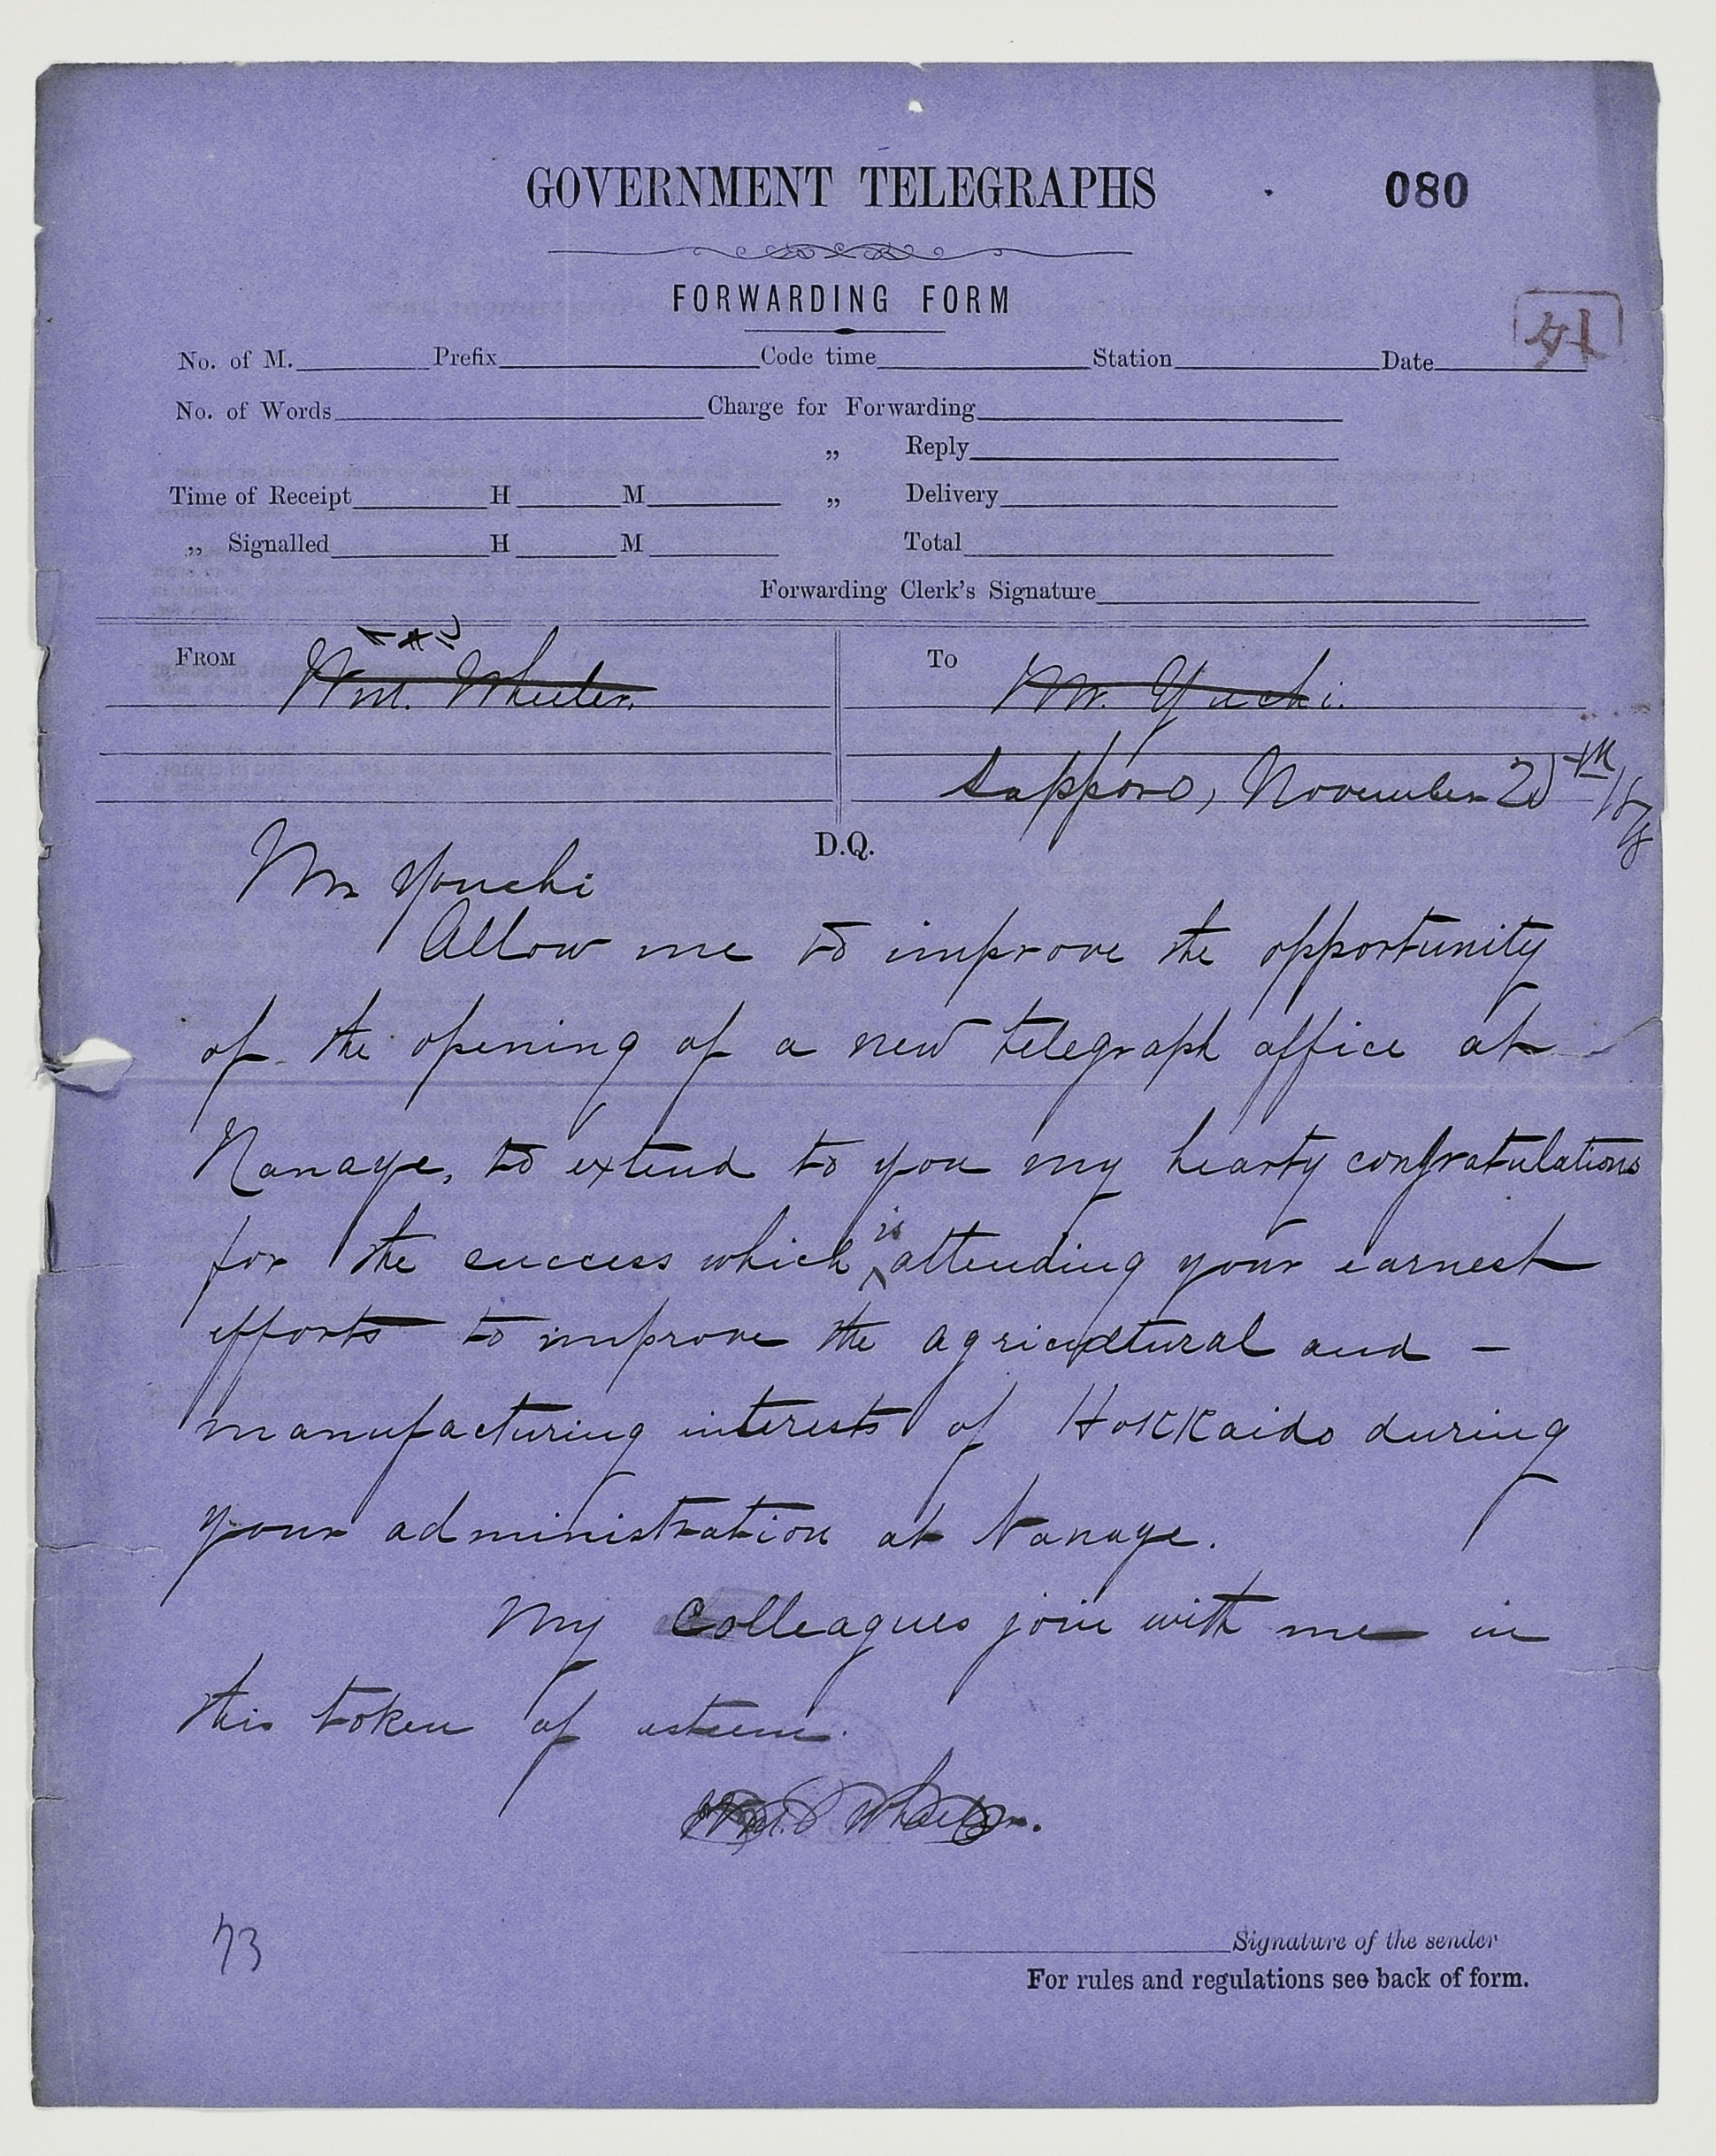 GOVERNMENT TELEGRAPHS
080
FORWARDING FORM
No. of M. Prefix Code time Station Date
No. of Words Charge for Forwarding
„ Reply
Time of Receipt H M „ Delivery
„ Signalled H M Total
Forwarding Clerk's Signature
FROM Wm. Wheeler.
To Mr. Yuchi.
Sapporo, November 25th
D.Q.
Mr Yuchi
Allow me to improve the opportunity
of the opening of a new telegraph office at
Nanaye, to extend to you my hearty congratulations
for the success which is attending your earnest
efforts to improve the agricultural and -
manufacturing interests of Hokkaido during
your administration at Nanaye.
My Colleagues join with me in
this token of esteem.
Wm. Wheeler.
73
Signature of the sender
For rules and regulations see back of form.